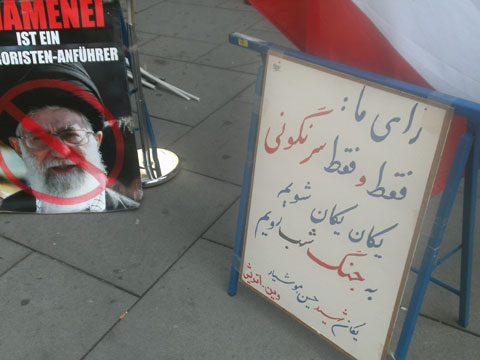 HAMENEI
IST EIN
RORISTEN-ANFÜHRER
رای ما :
فقط و فقط سرنگونی
یکان یکان شویم
به جنگ شب رویم
یکان شهید حسین هوشیار
وین - اتریش